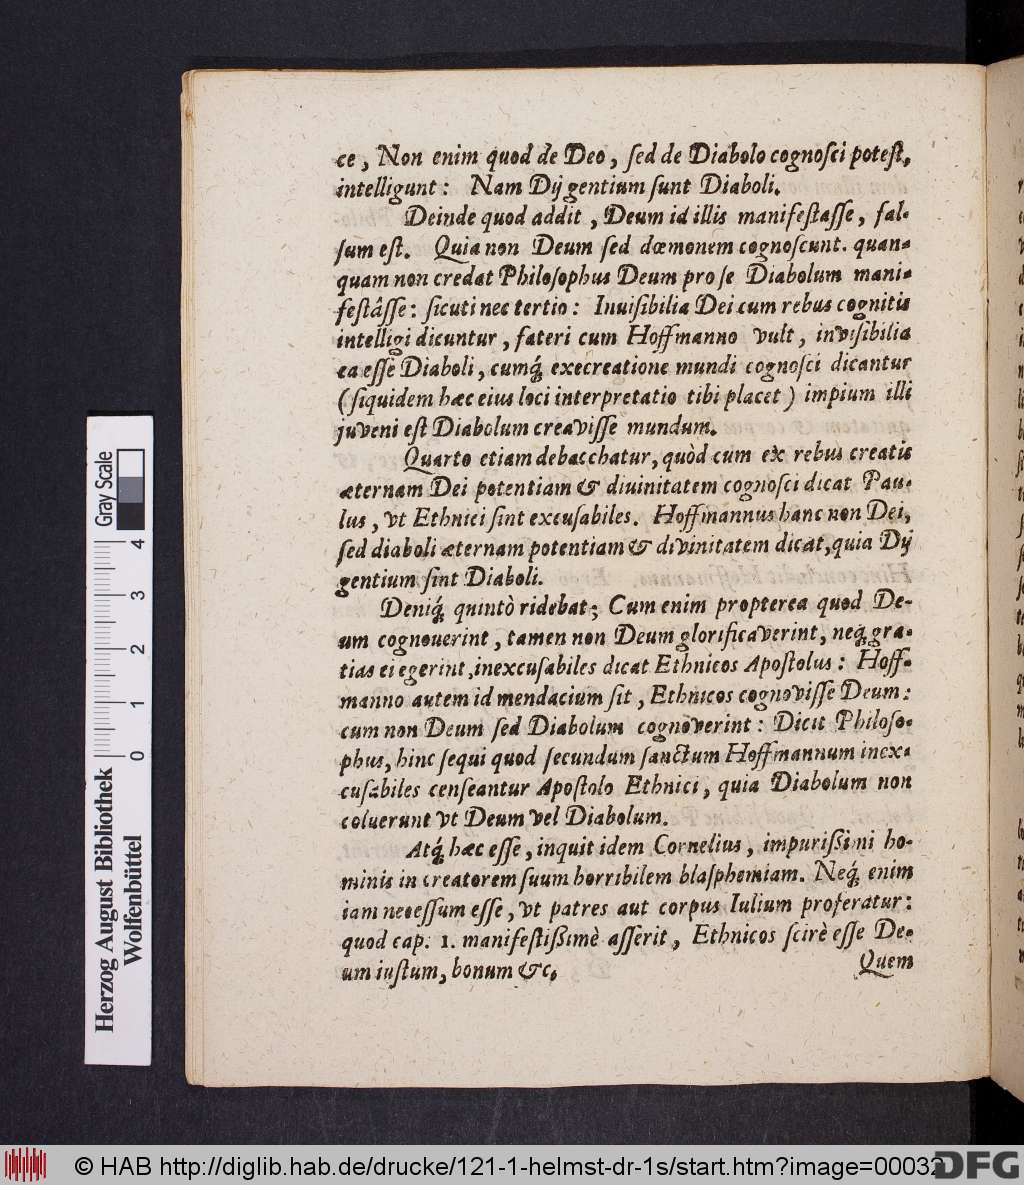 ce, Non enim quod de Deo, ſed de Diabolo cognoſci poteſt,
intelligunt: Nam Dij gentium ſunt Diaboli.
Deinde quod addit, Deum id illis manifeſtaſſe, fal-
ſum eſt. Quia non Deum ſed dœmonem cognoſcunt. quan-
quam non credat Philoſophus Deum pro ſe Diabolum mani-
feſtâſſe: ſicuti nec tertio: Inuiſibilia Dei cum rebus cognitis
intelligi dicuntur, fateri cum Hoffmanno vult, inviſibilia
ea eſſe Diaboli, cumq́ execreatione mundi cognoſci dicantur
(ſiquidem hæc eius loci interpretatio tibi placet) impium illi
juveni eſt Diabolum creaviſſe mundum.
Quarto etiam debacchatur, quòd cum ex rebus creatis
æternam Dei potentiam & diuinitatem cognoſci dicat Pau-
lus, vt Ethnici ſint excuſabiles. Hoffmannus hanc non Dei,
ſed diaboli æternam potentiam & divinitatem dicat, quia Dij
gentium ſint Diaboli.
Deniq́ quintò ridebat; Cum enim propterea quod De-
um cognouerint, tamen non Deum glorificaverint, neq́ gra-
tias ei egerint, inexcuſabiles dicat Ethnicos Apoſtolus: Hoff-
manno autem id mendacium ſit, Ethnicos cognoviſſe Deum:
cum non Deum ſed Diabolum cognoverint: Dicit Philoſo-
phus, hinc ſequi quod ſecundum ſanctum Hoffmannum inex-
cuſabiles cenſeantur Apoſtolo Ethnici, quia Diabolum non
coluerunt vt Deum vel Diabolum.
Atq́ hæc eſſe, inquit idem Cornelius, impurißimi ho-
minis in creatorem ſuum horribilem blaſphemiam. Neq́ enim
iam neceſſum eſſe, vt patres aut corpus Iulium proferatur:
quod cap. 1. manifeſtißimè aſſerit, Ethnicos ſcirè eſſe De-
um iuſtum, bonum &c.
Quem
Herzog August Bibliothek
Wolfenbüttel
Gray Scale
0 1 2 3 4
© HAB http://diglib.hab.de/drucke/121-1-helmst-dr-1s/start.htm?image=00032
DFG